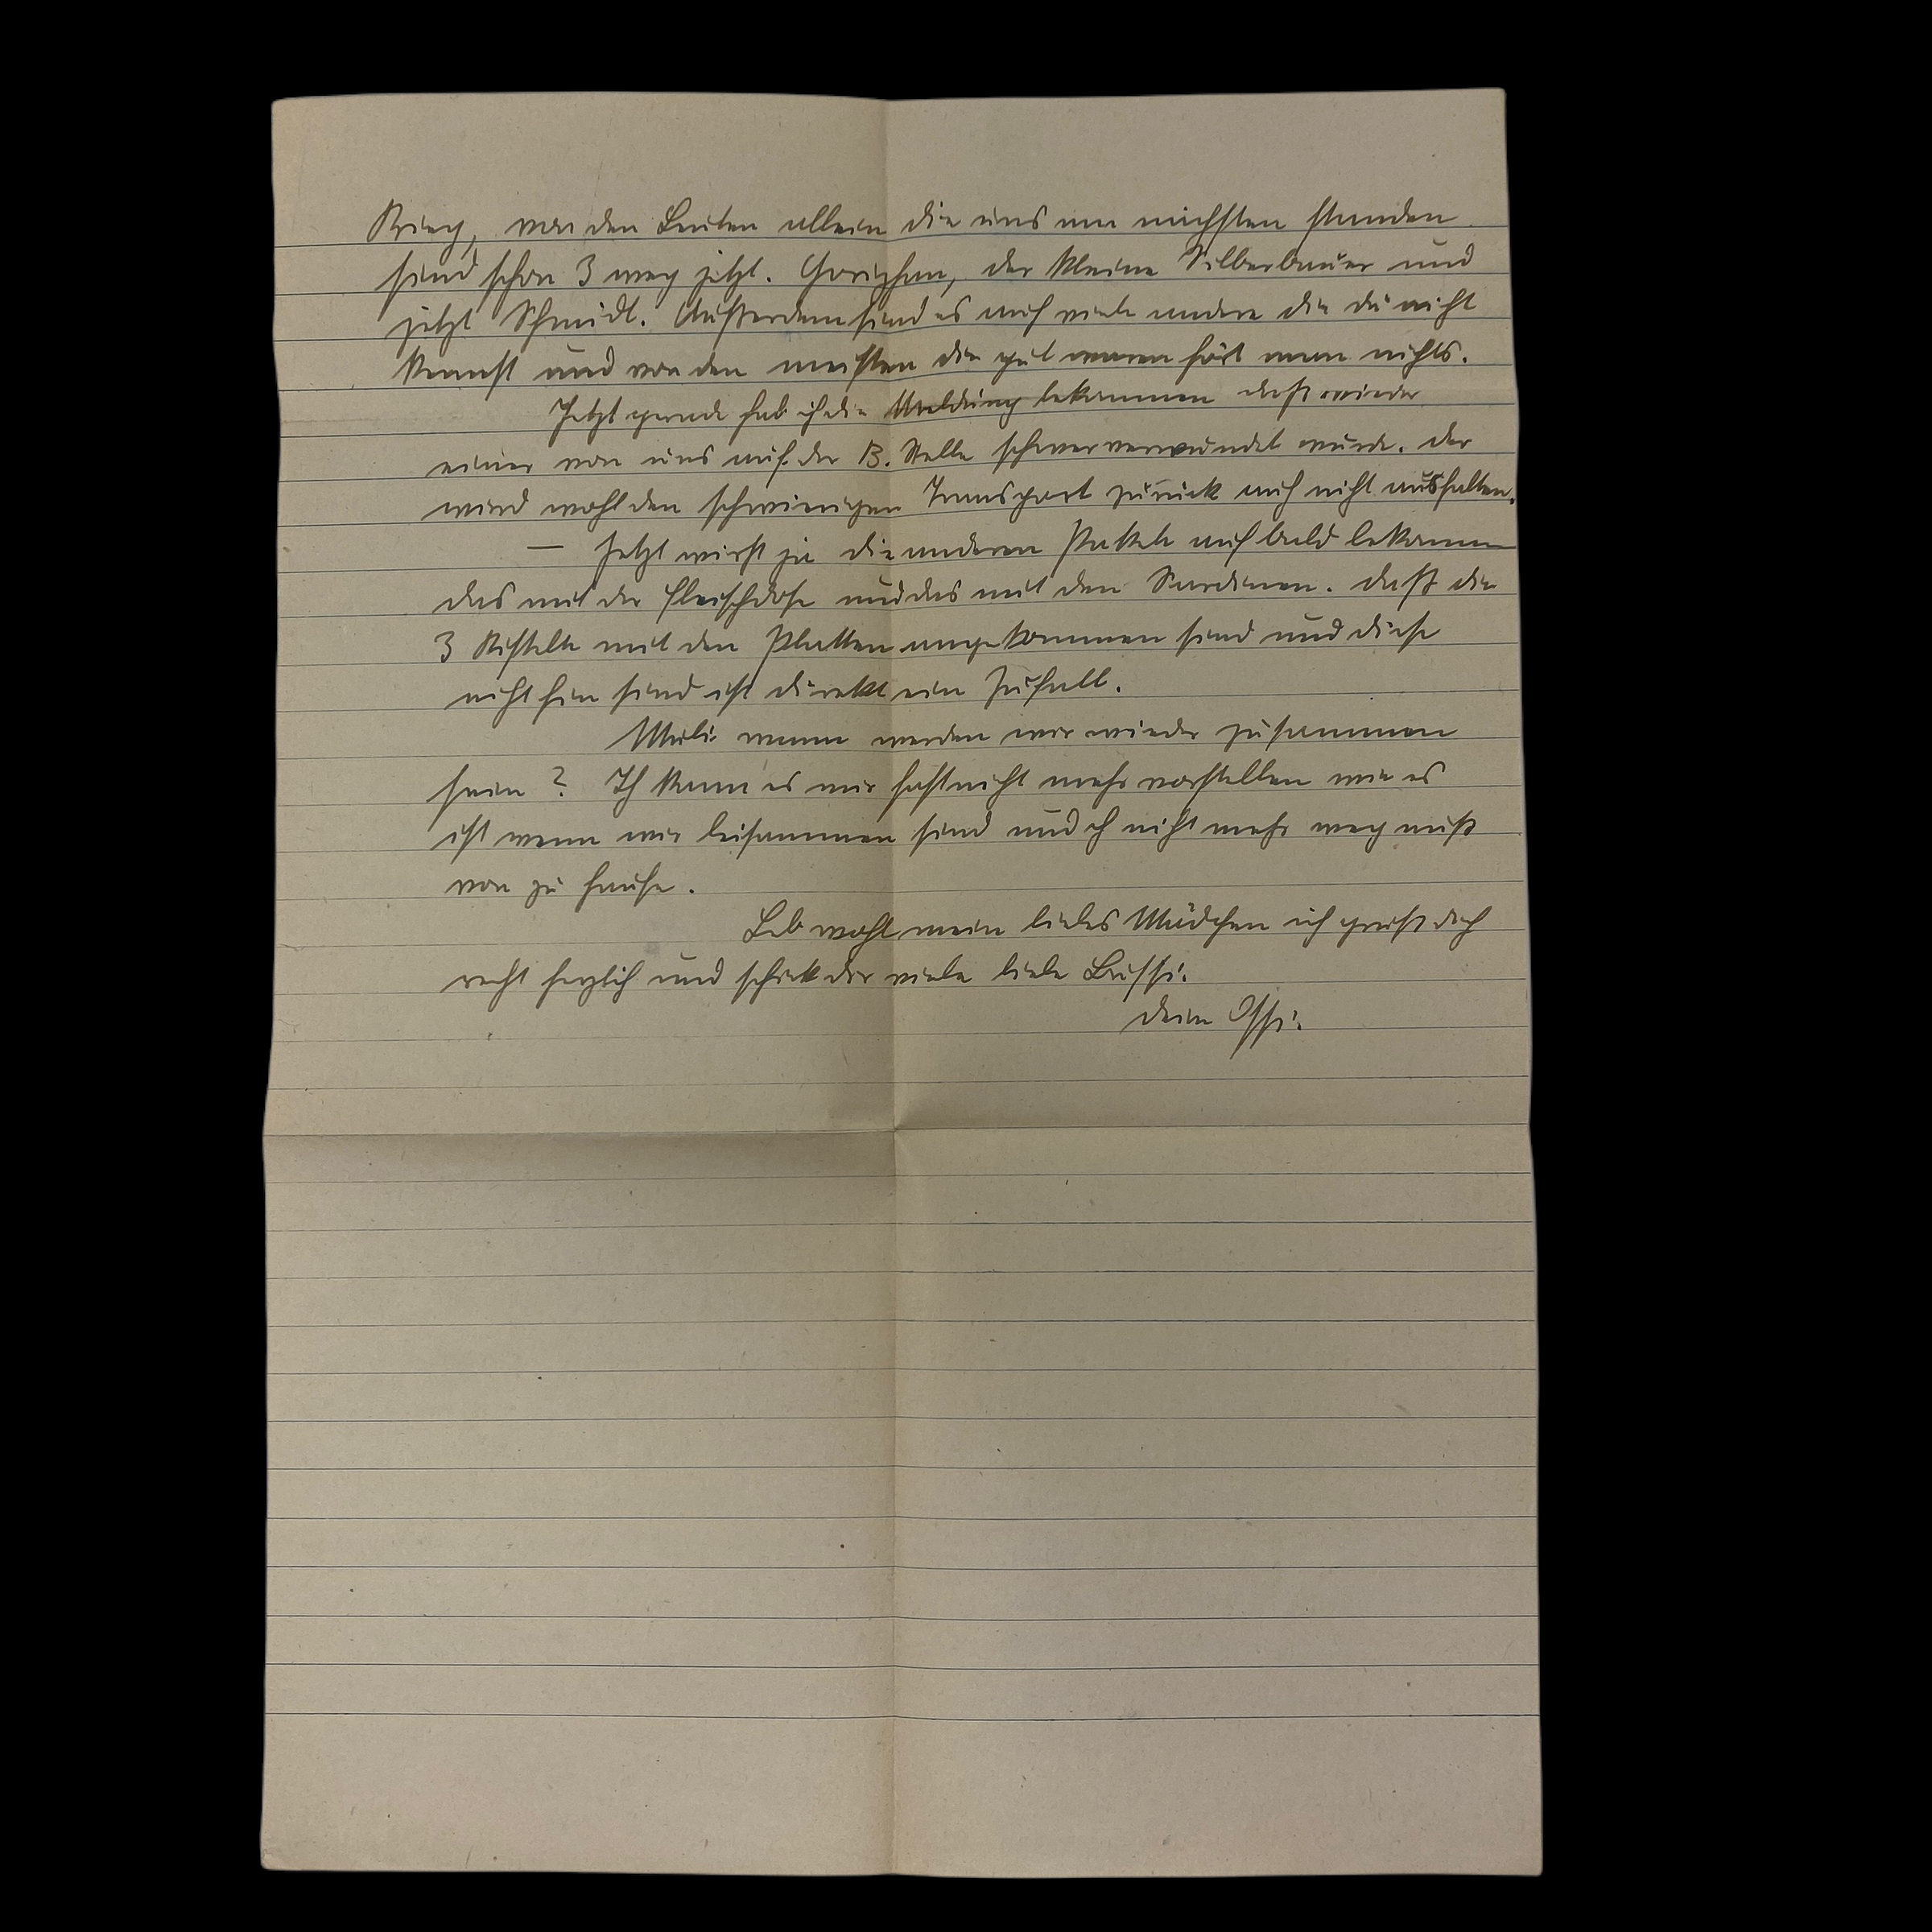 Krieg, von den Leuten allein die uns am nächsten standen
sind schon 3 weg jetzt. der kleine Silberbauer und
jetzt Schmidt. Außerdem sind es auch viele andere die du nicht
kennst und von den meisten die gut waren hört man nichts.
Jetzt gerade hab ich die Meldung bekommen daß wieder
einer von uns auf der B. Stelle schwer verwundet wurde. Der
wird wohl den schwierigen Transport zurück auch nicht aushalten.
— Jetzt wirst ja die anderen Pakete auch bald bekommen
das mit der Fleischdose und das mit den Sardinen. Daß die
3 Kisteln mit den Platten angekommen sind und diese
nicht hin sind ist direkt ein Zufall.
wann werden wir wieder zusammen
sein? Ich kann es mir fast nicht mehr vorstellen wie es
ist wenn wir beisammen sind und ich nicht mehr weg muß
von zu Hause.
Leb wohl mein liebes Mädchen ich grüß dich
recht herzlich und schick dir viele liebe Bussi.
Dein Ossi.